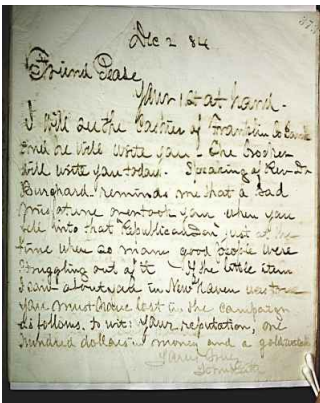 Dec 2 84
Friend Pease
Your 1st at hand.
I will see the Cashier of Franklin Co Bank
and he will write you - The Brooker
will write you today. Speaking of Rev. Dr
Burghard reminds me that a sad
misfortune overtook you when you
fell into that Republican Den just at the
time when so many good people were
struggling out of it - If the little item
I saw about you in New Haven was true
you must have lost in the campaign
as follows. to wit: Your reputation, one
hundred dollars in money and a gold watch
Yours truly